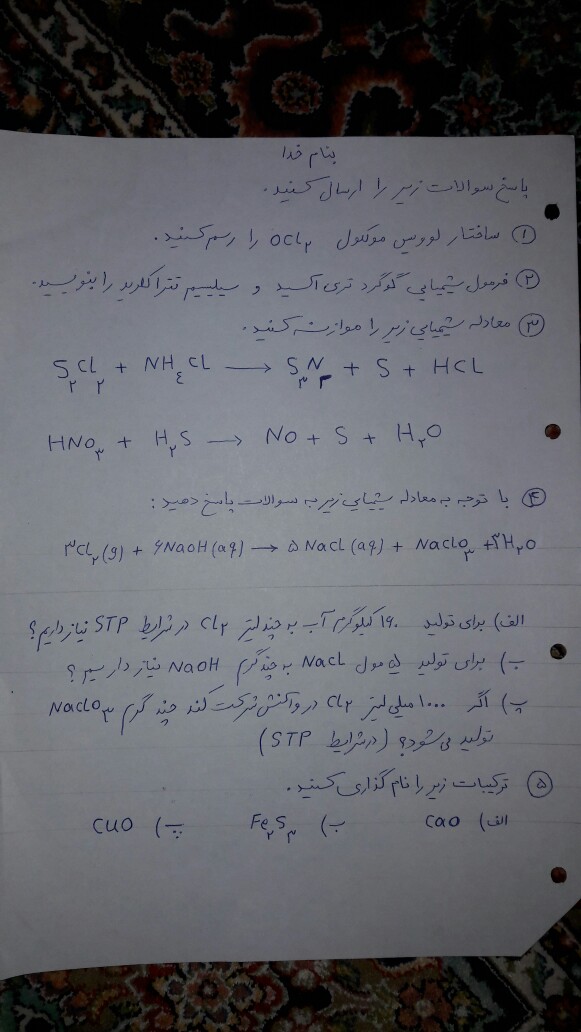 بنام خدا
پاسخ سوالات زیر را ارسال کنید.
① ساختار لوویس مولکول OCl₂ را رسم کنید.
② فرمول شیمیایی گوگرد تری اکسید و سیلیسیم تتراکلرید را بنویسید.
③ معادله شیمیایی زیر را موازنه کنید.
S₂Cl₂ + NH₄Cl → S₃N₃ + S + HCl
HNO₃ + H₂S → NO + S + H₂O
④ با توجه به معادله شیمیایی زیر به سوالات پاسخ دهید:
۳Cl₂(g) + ۶NaOH(aq) → ۵NaCl(aq) + NaClO₃ + ۳H₂O
الف) برای تولید ۱۶۰ کیلوگرم آب به چند لیتر Cl₂ در شرایط STP نیاز داریم؟
ب) برای تولید ۵ مول NaCl به چند گرم NaOH نیاز داریم؟
پ) اگر ۱۰۰۰ میلی لیتر Cl₂ در واکنش شرکت کند چند گرم NaClO₃
تولید می‌شود؟ (در شرایط STP)
⑤ ترکیبات زیر را نام گذاری کنید.
الف) CaO ب) Fe₂S₃ پ) CuO